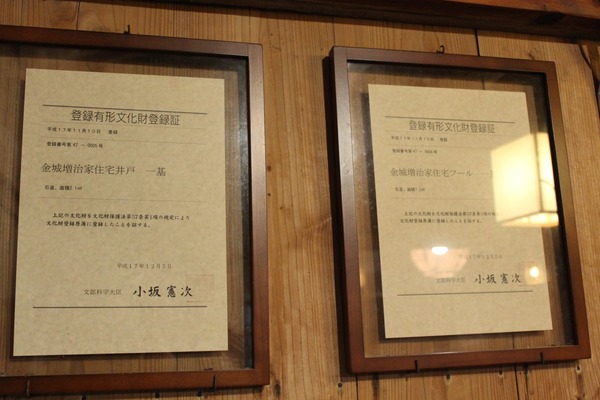 登録有形文化財登録証
平成17年11月10日 登録
登録番号第47-0005号
金城増治家住宅井戸 一基
石造、面積
上記の文化財を文化財保護法第57条第1項の規定により
文化財登録原簿に登録したことを証する。
平成17年12月5日
文部科学大臣 小坂憲次
登録有形文化財登録証
平成17年11月10日 登録
登録番号第47-0006号
金城増治家住宅フール 一基
石造、面積
上記の文化財を文化財保護法第57条第1項の規定により
文化財登録原簿に登録したことを証する。
平成17年12月5日
文部科学大臣 小坂憲次